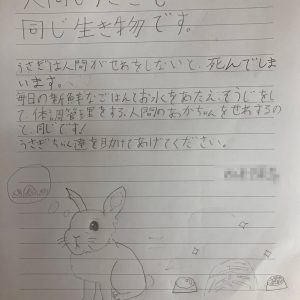 人間もうさぎも
同じ生き物です。
うさぎは人間がせわをしないと、死んでしま
います。
毎日の新鮮なごはんとお水をあたえ、そうじをし
て体調管理をする、人間のあかちゃんをせわするの
と、同じです!
うさぎちゃん達を助けてあげてください。